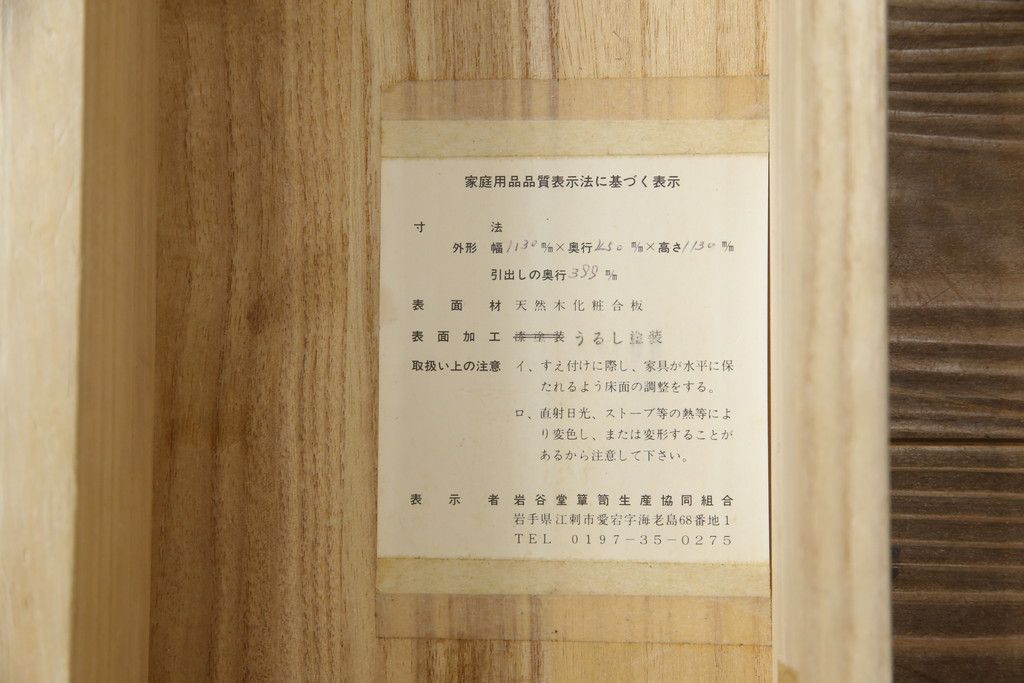 家庭用品品質表示法に基づく表示
寸法
外形 幅1130㎜×奥行450㎜×高さ1130㎜
引出しの奥行389㎜
表面材 天然木化粧合板
表面加工 漆塗装 うるし塗装
取扱い上の注意 イ、すえ付けに際し、家具が水平に保
たれるよう床面の調整をする。
ロ、直射日光、ストーブ等の熱等によ
り変色し、または変形することが
あるから注意して下さい。
表示者 岩谷堂簞笥生産協同組合
岩手県江刺市愛宕字海老島68番地1
TEL 0197-35-0275